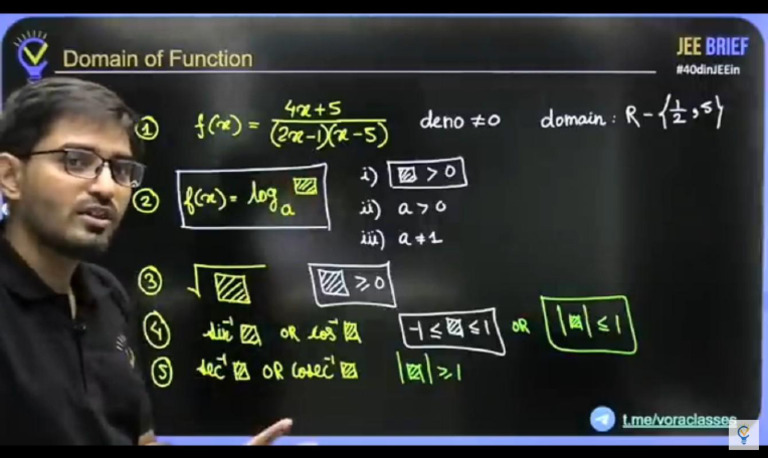 Domain of Function
JEE BRIEF
#40dinJEEin
① f(x) = (4x+5)/((2x-1)(x-5)) deno ≠ 0 domain : R - {1/2, 5}
② f(x) = logₐ ▨ i) ▨ > 0
ii) a > 0
iii) a ≠ 1
③ √▨ ▨ ≥ 0
④ sin⁻¹ ▨ OR cos⁻¹ ▨ -1 ≤ ▨ ≤ 1 OR |▨| ≤ 1
⑤ sec⁻¹ ▨ OR cosec⁻¹ ▨ |▨| ≥ 1
t.me/voraclasses